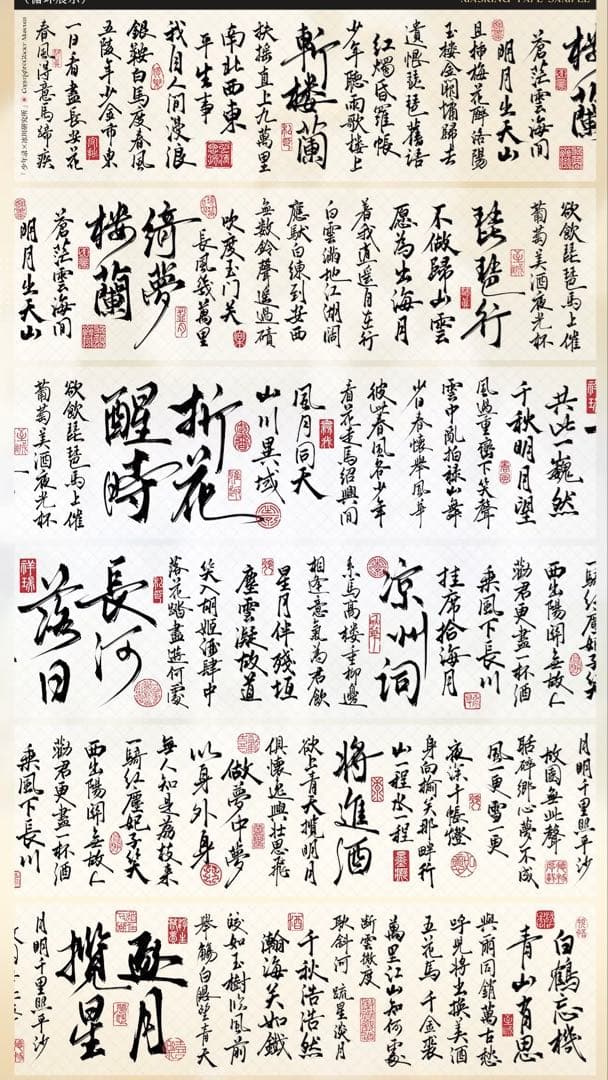 MASKING TAPE SAMPLE
樓蘭
蒼茫雲海間
明月出天山
且插梅花醉洛陽
玉樓金闕慵歸去
遺恨琵琶舊語
紅燭昏羅帳
少年聽雨歌樓上
斬樓蘭
扶搖直上九萬里
南北西東
平生事
我自人間漫浪
銀鞍白馬度春風
五陵年少金市東
一日看盡長安花
春風得意馬蹄疾
欲飲琵琶馬上催
葡萄美酒夜光杯
琵琶行
不做歸山雲
愿為出海月
着我逍遙自在行
白雲滿地江湖闊
應馱白練到安西
無數鈴聲遙過磧
吹度玉門关
長風幾萬里
綺夢
樓蘭
蒼茫雲海間
明月出天山
共此一巍然
千秋明月望
風過重巒下笑聲
雲中亂拍祿山舞
彼此春風各少年
看花走馬紹興間
風月同天
山川異域
折花
醒時
欲飲琵琶馬上催
葡萄美酒夜光杯
一騎紅塵妃子笑
西出陽關無故人
勸君更盡一杯酒
乘風下長川
挂席拾海月
涼州詞
系馬高樓垂柳邊
相逢意氣為君飲
星月伴殘垣
塵雲凝故道
笑入胡姬酒肆中
落花踏盡遊何處
長河
落日
月明千里照平沙
故園無此聲
聒碎鄉心夢不成
風一更雪一更
夜深千帳燈
身向榆关那畔行
山一程水一程
將進酒
欲上青天攬明月
俱懷逸興壯思飛
做夢中夢
以身外身
無人知是荔枝來
一騎紅塵妃子笑
西出陽關無故人
勸君更盡一杯酒
乘風下長川
白鶴忘機
青山有思
與爾同銷萬古愁
呼兒將出換美酒
五花馬千金裘
萬里江山知何處
斷雲微度
耿斜河疏星淡月
千秋浩浩然
瀚海笑如鐵
皎如玉樹臨風前
舉觴白眼望青天
逐月
攬星
月明千里照平沙